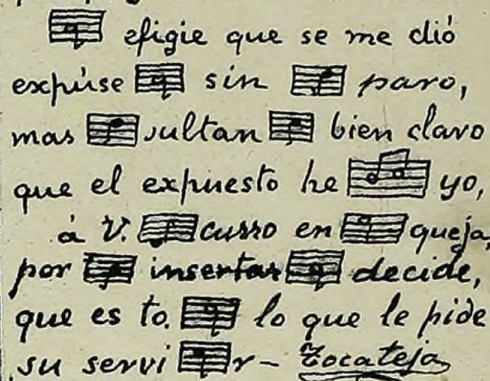 efigie que se me dió
expúse sin paro,
mas sultan bien claro
que el expuesto he yo,
á V. curro en queja,
por insertar decide,
que es to. lo que le pide
su servi r- Tocateja